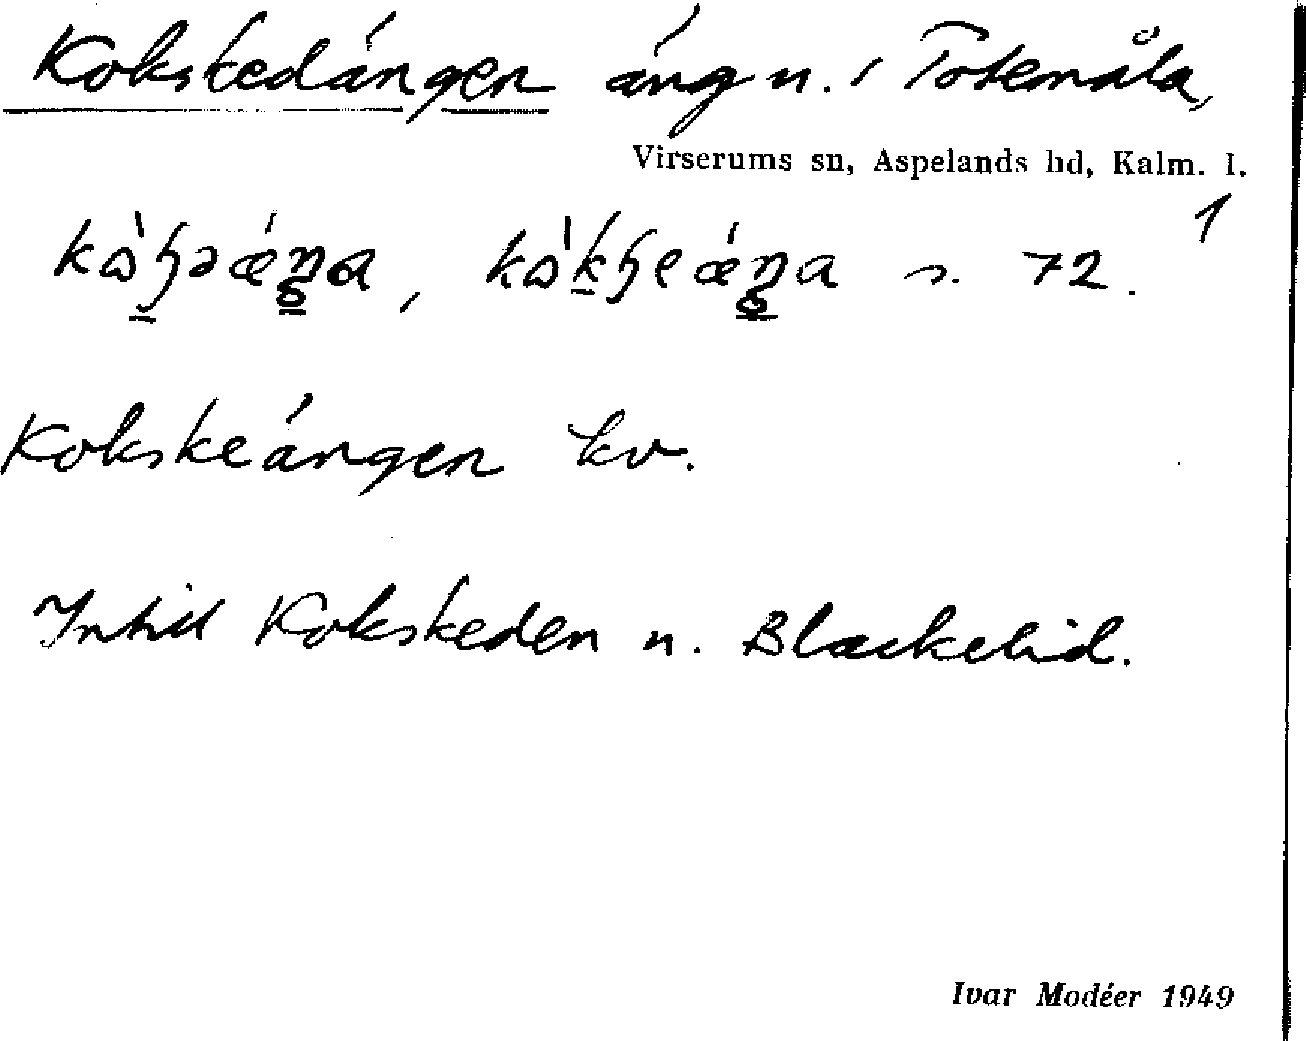 Kokskedängen äng n. i Totemåla,
Virserums sn, Aspelands hd, Kalm. l.
1
s. 72.
Kokskeängen kv.
Intill Kokskeden n. Blackelid.
Ivar Modéer 1949